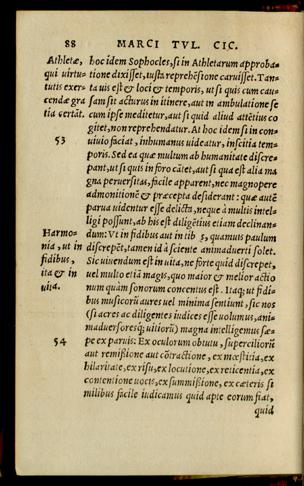 88 MARCI TVL. CIC.
Athletæ, hoc idem Sophocles, si in Athletarum approba-
qui uirtu- tione dixisset, iusta reprehēsione caruisset. Tan-
tutis exer- ta uis est & loci & temporis, ut si quis cum cau-
cendæ gra sam sit acturus in itinere, aut in ambulatione se
tia certāt. cum ipse meditetur, aut si quid aliud attētius co
gitet, non reprehendatur. At hoc idem si in con-
53 uiuio faciat, inhumanus uideatur, inscitia tem-
poris. Sed ea quæ multum ab humanitate discre-
pant, ut si quis in foro cātet, aut si qua est alia ma
gna peruersitas, facile apparent, nec magnopere
admonitionē & præcepta desiderant: quæ autē
parua uidentur esse delicta, neque à multis intel-
ligi possunt, ab his est diligētius etiam declinan-
Harmo- dum: Vt in fidibus aut in tib 5, quamuis paulum
nia, ut in discrepēt, tamen id à sciente animaduerti solet.
fidibus, Sic uiuendum est in uita, ne forte quid discrepet,
ita & in uel multo etiā magis, quo maior & melior actio
uita. num quàm sonorum concentus est. Itaq; ut fidi-
bus musicorū aures uel minima sentiunt, sic nos
(si acres ac diligentes iudices esse uolumus, ani-
maduersoresq; uitiorū) magna intelligemus sæ-
54 pe ex paruis: Ex oculorum obtutu, superciliorū
aut remißione aut cōtractione, ex mœstitia, ex
hilaritate, ex risu, ex locutione, ex reticentia, ex
contentione uocis, ex summißione, ex cæteris si
milibus facile iudicamus quid apte eorum fiat,
quid